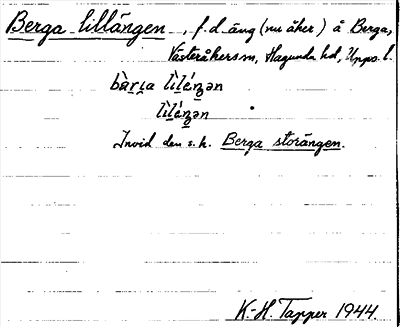 Berga lillängen, f.d. äng (nu åker) å Berga,
Västeråkers sn, Hagunda hd, Upps. l.
Invid den s.k. Berga storängen.
K-H. Tapper 1944.